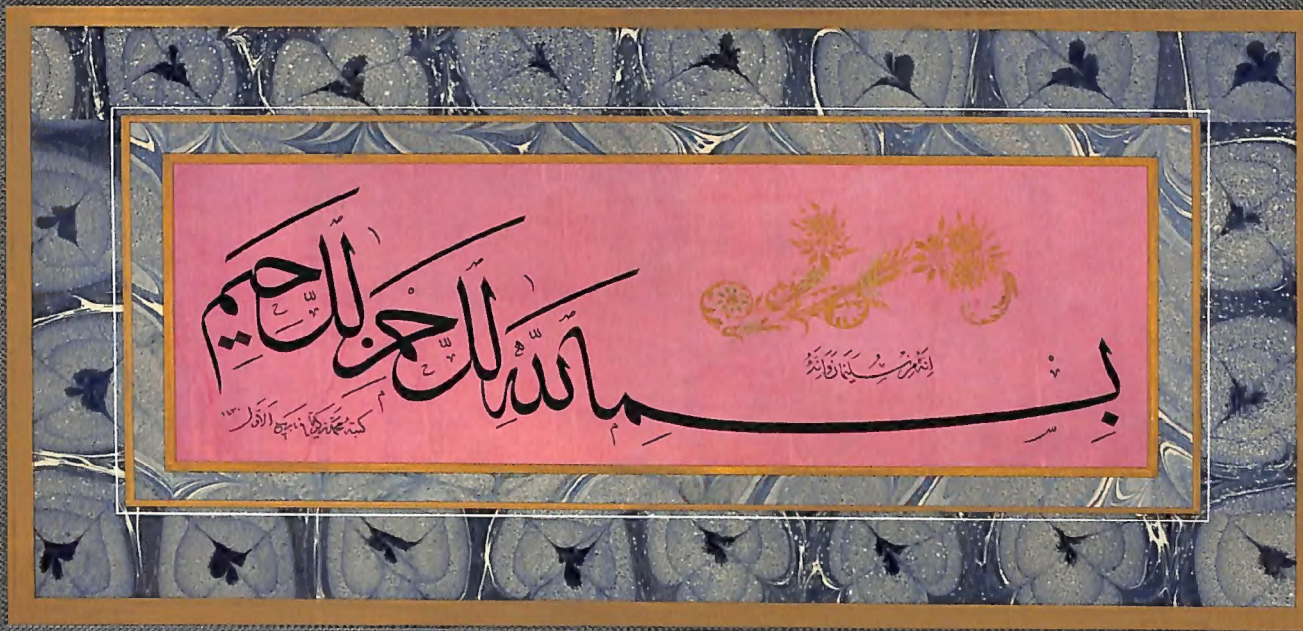 إنه من سليمان وإنه
بسم الله الرحمن الرحيم
كتبه محمد زكريا في ربيع الأول ١٤٣٠